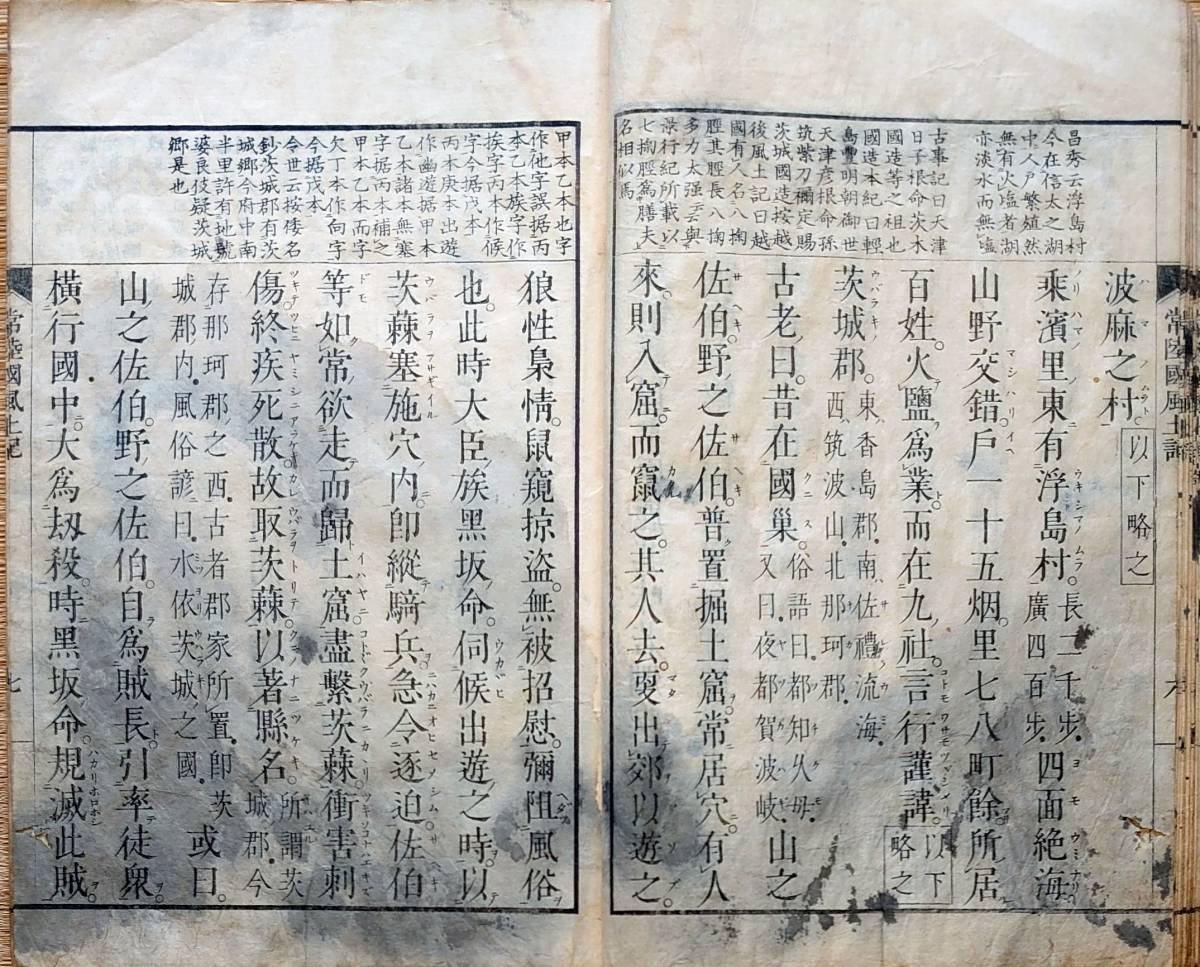 昌秀云浮島村
今在信太之湖
中人戸繁殖然
無有火塩者湖
亦淡水而無塩
古事記曰天津
日子根命茨木
國造等之祖也
國造本紀曰輕
島豐明朝御世
天津彥根命孫
筑紫刀禰定賜
茨城國造按越
後風土記曰越
國有人名八掬
脛其脛長八掬
多力太强云與
景行紀所載以
七掬脛爲膳夫
名相似焉
波麻之村。以下略之
乘濱里東有浮島村。長二千步。廣四百步。四面絕海
山野交錯。戶一十五烟。里七八町餘。所居
百姓。火鹽爲業。而在九社。言行謹諱。以下略之
茨城郡。東香島郡。南佐禮流海。西筑波山。北那珂郡。
古老曰。昔在國巢。俗語曰。都知久母。又曰。夜都賀波岐。山之
佐伯。野之佐伯。普置掘土窟。常居穴。有人
來。則入窟。而竄之。其人去。更出郊以遊之。
常陸國風土記
六
甲本乙本也字
作他字誤据丙
本乙本族字作
挨字丙本作候
字今据戊本
丙本庚本出遊
作幽遊据甲本
乙本諸本無塞
字据丙本補之
甲本乙本而字
欠丁本作向字
今据戊本
今世云按倭名
鈔茨城郡有茨
城鄉今府中南
半里許有地號
婆良伎疑茨城
鄉是也
狼性梟情。鼠窺掠盜。無被招慰。彌阻風俗
也。此時大臣族黑坂命。伺候出遊之時。以
茨蕀塞施穴內。卽縱騎兵。急令逐迫。佐伯
等如常。欲走而歸土窟。盡繫茨蕀。衝害刺
傷。終疾死散。故取茨蕀。以著縣名。所謂茨城郡。今
存那珂郡之西。古者郡家所置。卽茨城郡內。風俗諺曰。水依茨城之國。或曰。
山之佐伯。野之佐伯。自爲賊長。引率徒衆。
橫行國中。大爲劫殺。時黑坂命。規滅此賊。
常陸國風土記
七